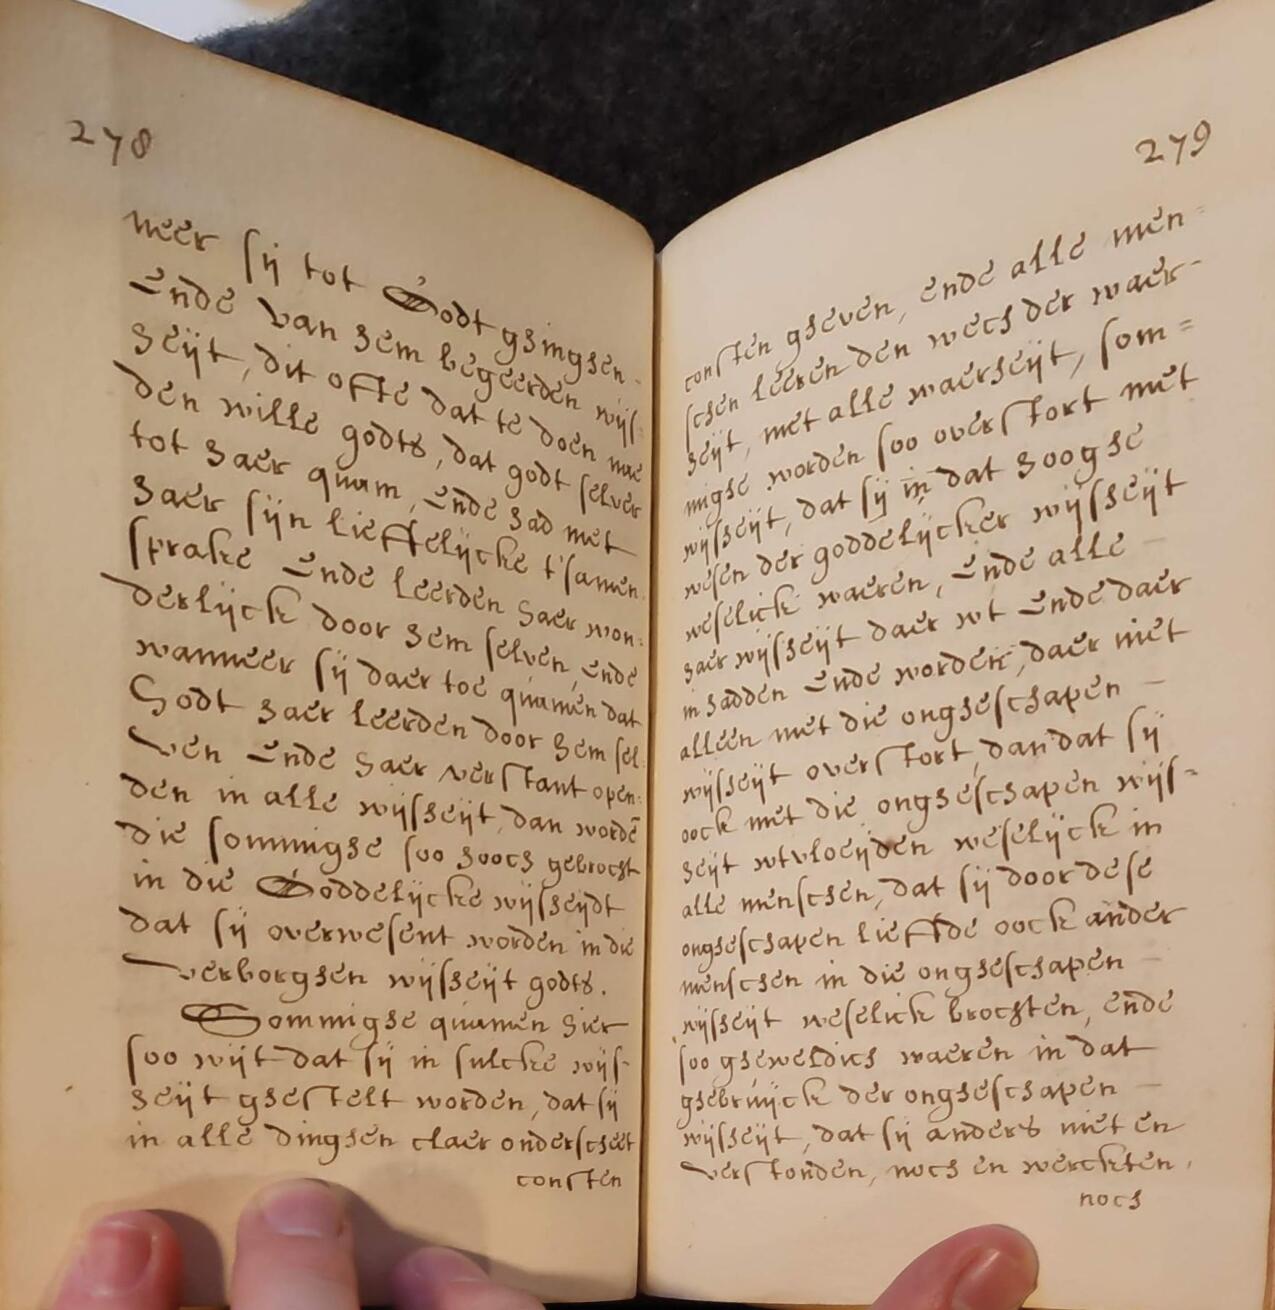 278
neer sij tot Godt ghinghen
ende van hem begeerden wijs-
heijt, dit ofte dat te doen nae
den wille godts, dat godt selver
tot haer quam, ende had met
haer sijn lieffelijcke t'samen
sprake ende leerden haer won:
derlijck door hem selven, ende
wanneer sij daer toe quamen dat
Godt haer leerden door hem sel
ven ende haer verstant open:
den in alle wijsheijt, dan wordē
die sommighe soo hooch gebrocht
in die Goddelijcke wijsheijdt
dat sij overwesent worden in die
verborghen wijsheijt godts.
Sommighe quamen hier
soo wijt dat sij in sulcke wijs-
heijt ghestelt worden, dat sij
in alle dinghen claer onderscheet
consten
279
consten gheven, ende alle men-
schen leeren den wech der waer-
heijt, met alle waerheijt, som=
mighe worden soo overstort met
wijsheijt, dat sij in dat hooghe
wesen der goddelijcker wijsheijt
weselick waeren, ende alle
haer wijsheijt daer wt ende daer
in hadden ende worden, daer niet
alleen met die ongheschapen
wijsheijt overstort, dan dat sij
oock met die ongheschapen wijs-
heijt wtvloeijden weselijck in
alle menschen, dat sij door dese
ongheschapen lieffde oock ander
menschen in die ongheschapen
wijsheijt weselick brochten, ende
soo gheweldich waeren in dat
ghebruijck der ongheschapen
wijsheijt, dat sij anders niet en
verstonden, noch en werckten,
noch